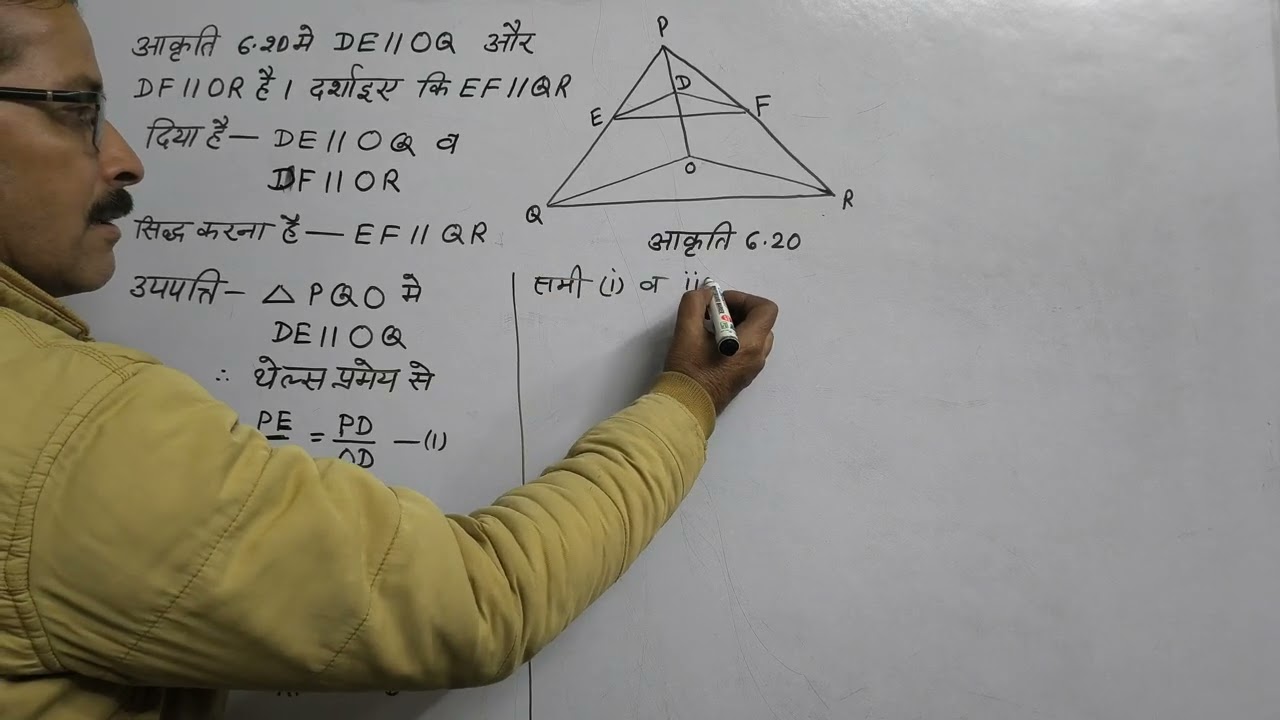 आकृति 6.20 मे DE || OQ और
DF || OR है। दर्शाइए कि EF || QR
दिया है— DE || OQ व
DF || OR
सिद्ध करना है— EF || QR
उपपत्ति— △ PQO मे
DE || OQ
∴ थेल्स प्रमेय से
PE = PD —(1)
OD
P
D
E
F
O
Q
R
आकृति 6.20
समी (i) व ii